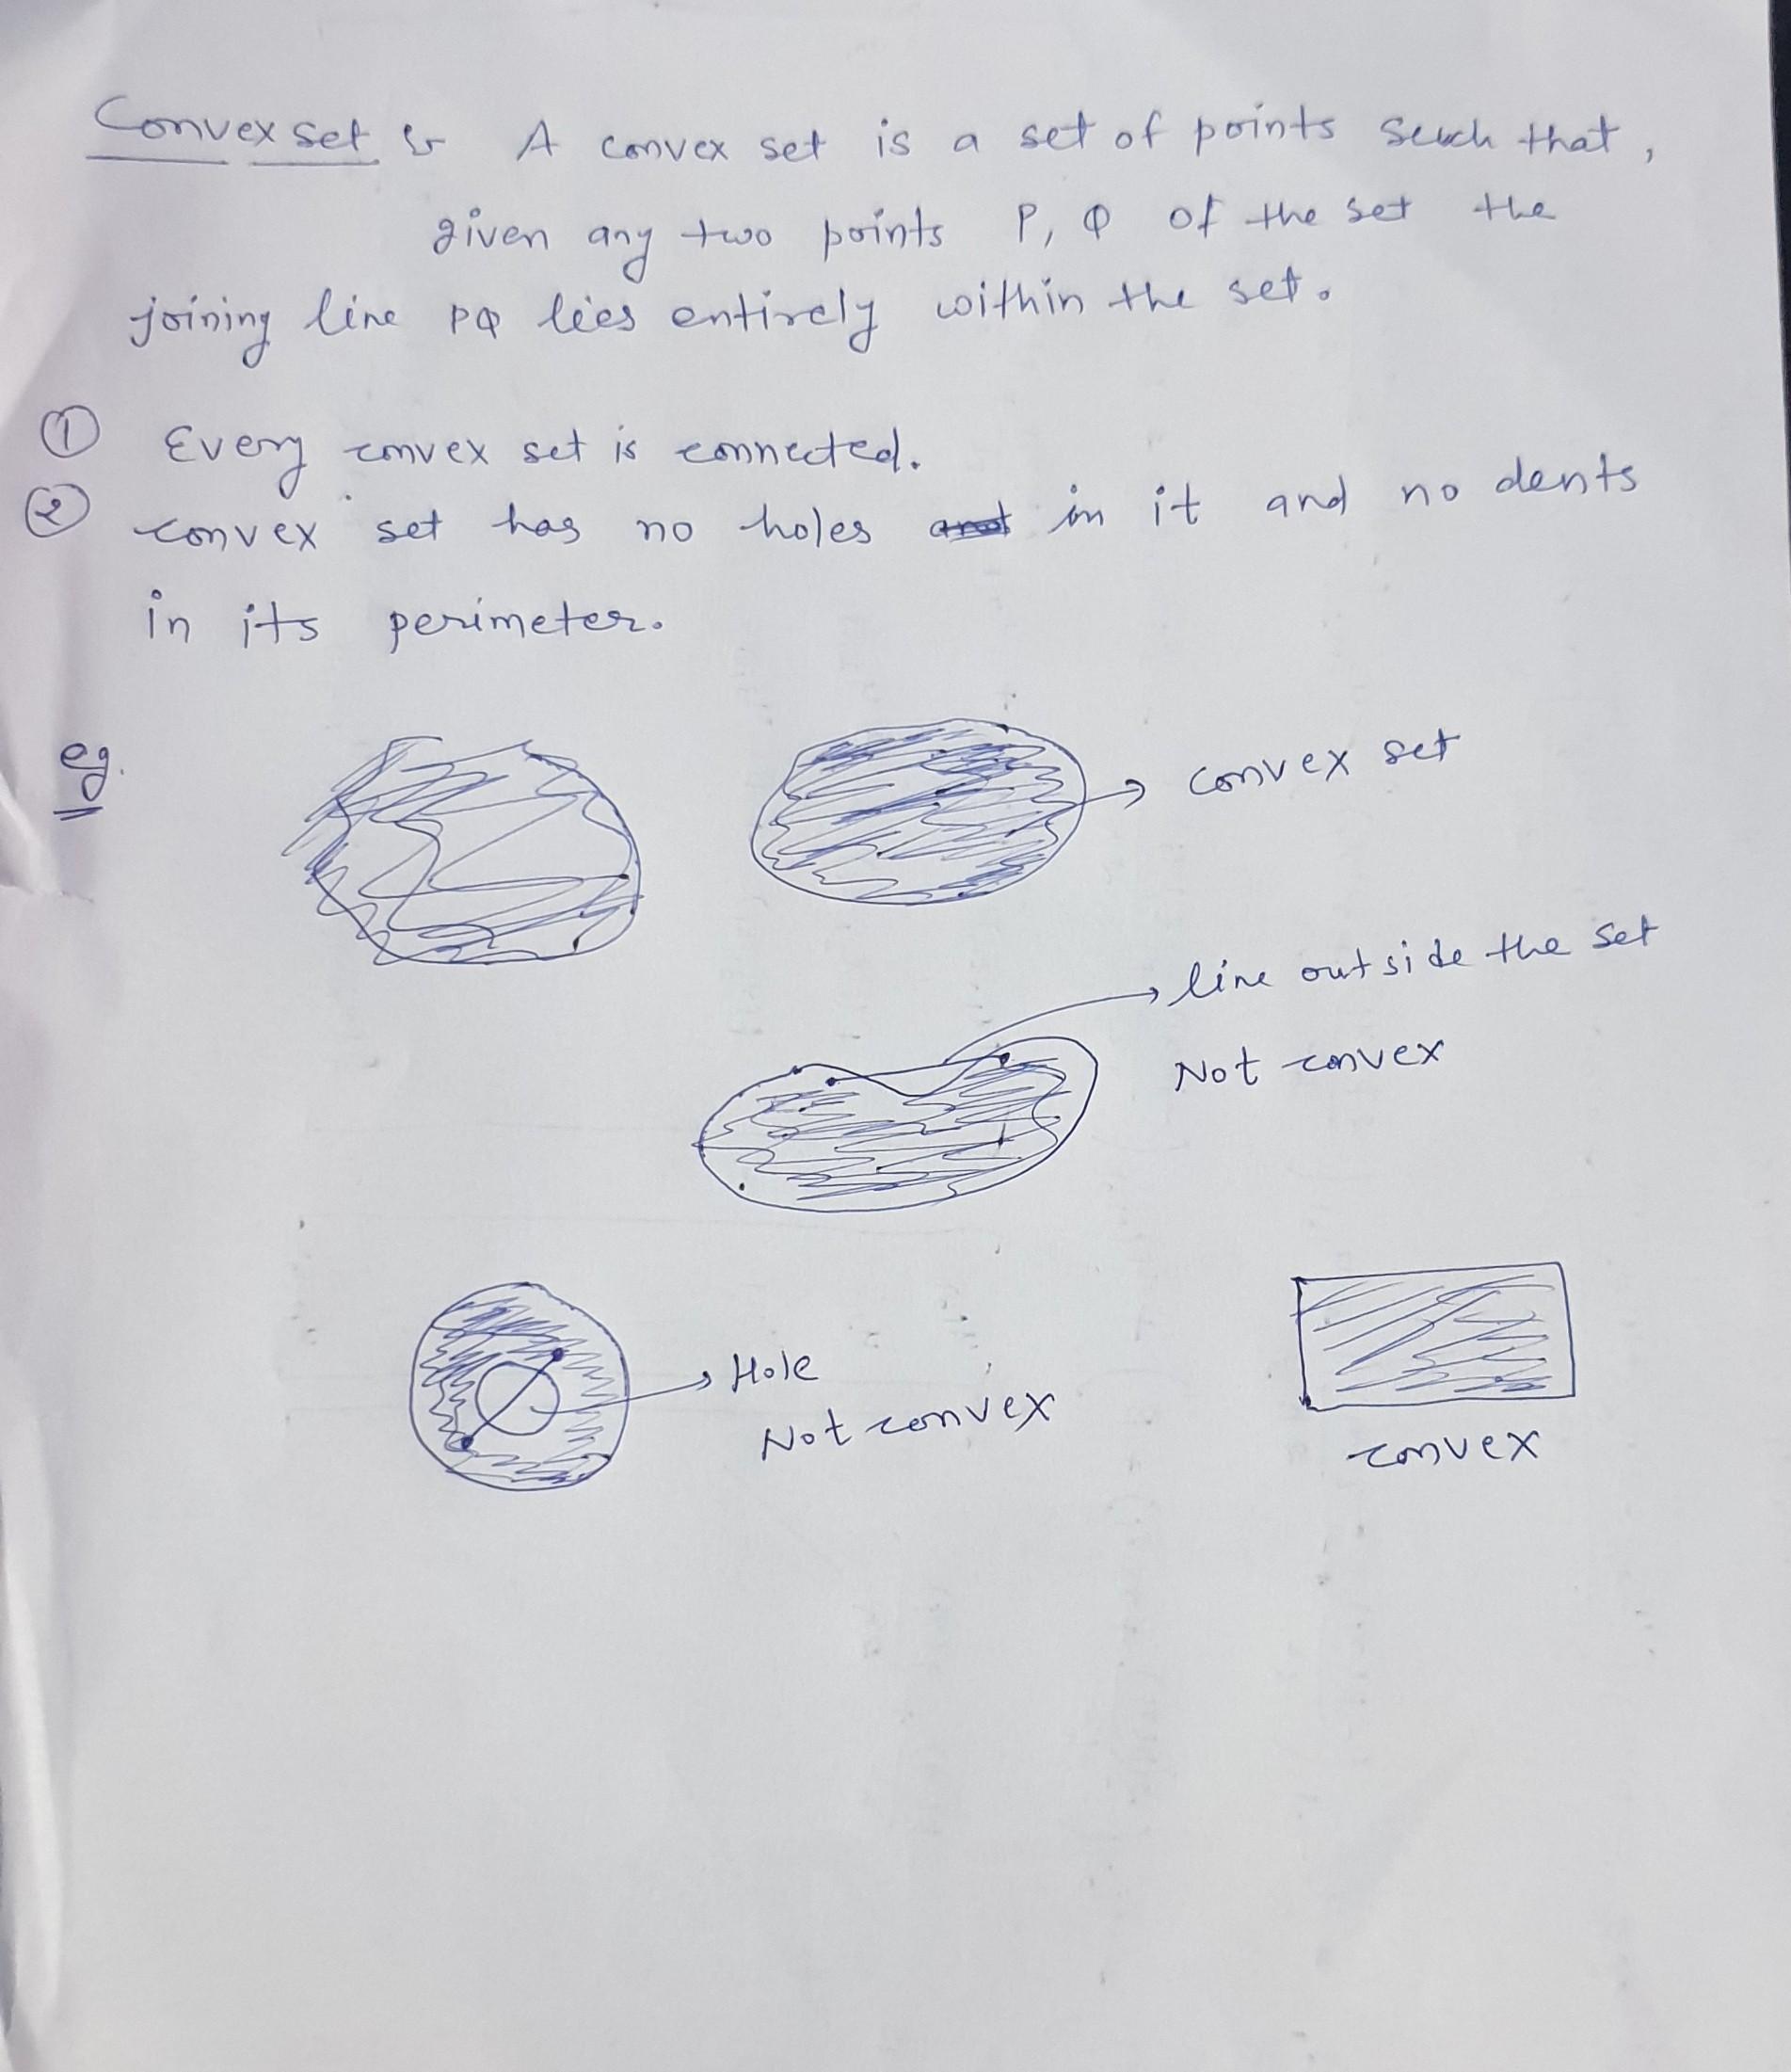 Convex set :- A convex set is a set of points such that,
given any two points P, Q of the set the
joining line PQ lies entirely within the set.
① Every convex set is connected.
② convex set has no holes in it and no dents
in its perimeter.
eg.
convex set
line outside the set
Not convex
Hole
Not convex
convex